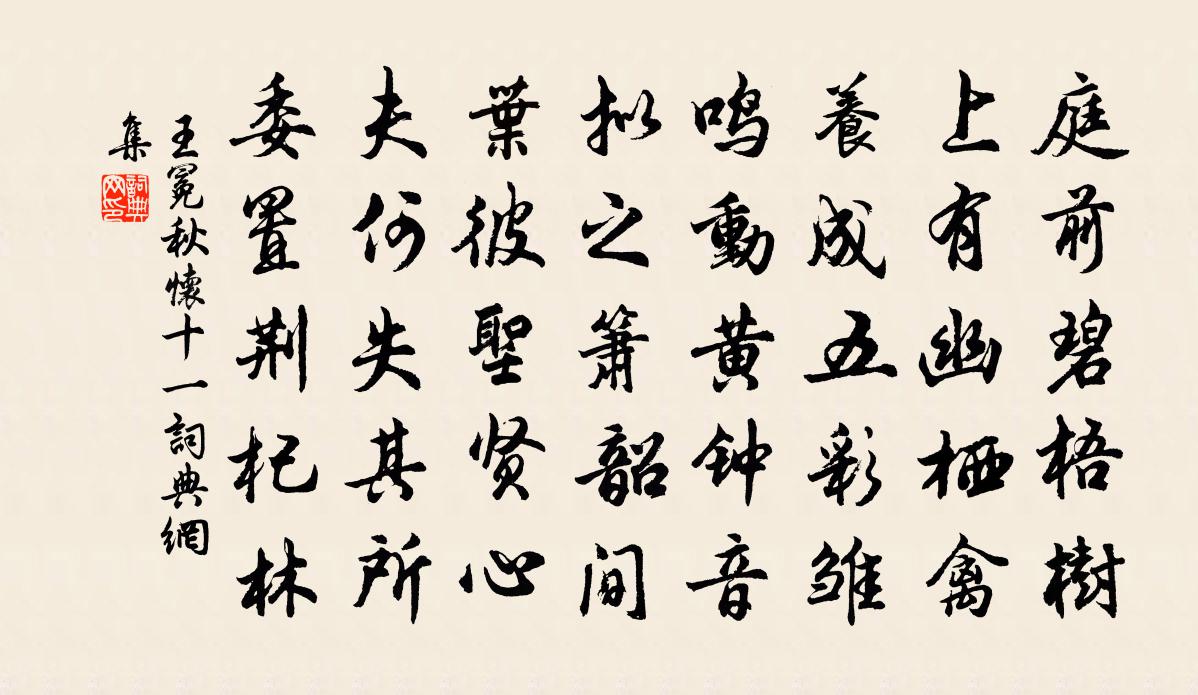 庭前碧梧樹
上有幽栖禽
養成五彩雏
鸣動黄钟音
拟之箫韶间
葉彼聖贤心
夫何失其所
委置荆杞林
王冕秋懷十一詞典網
集
詞典
网印